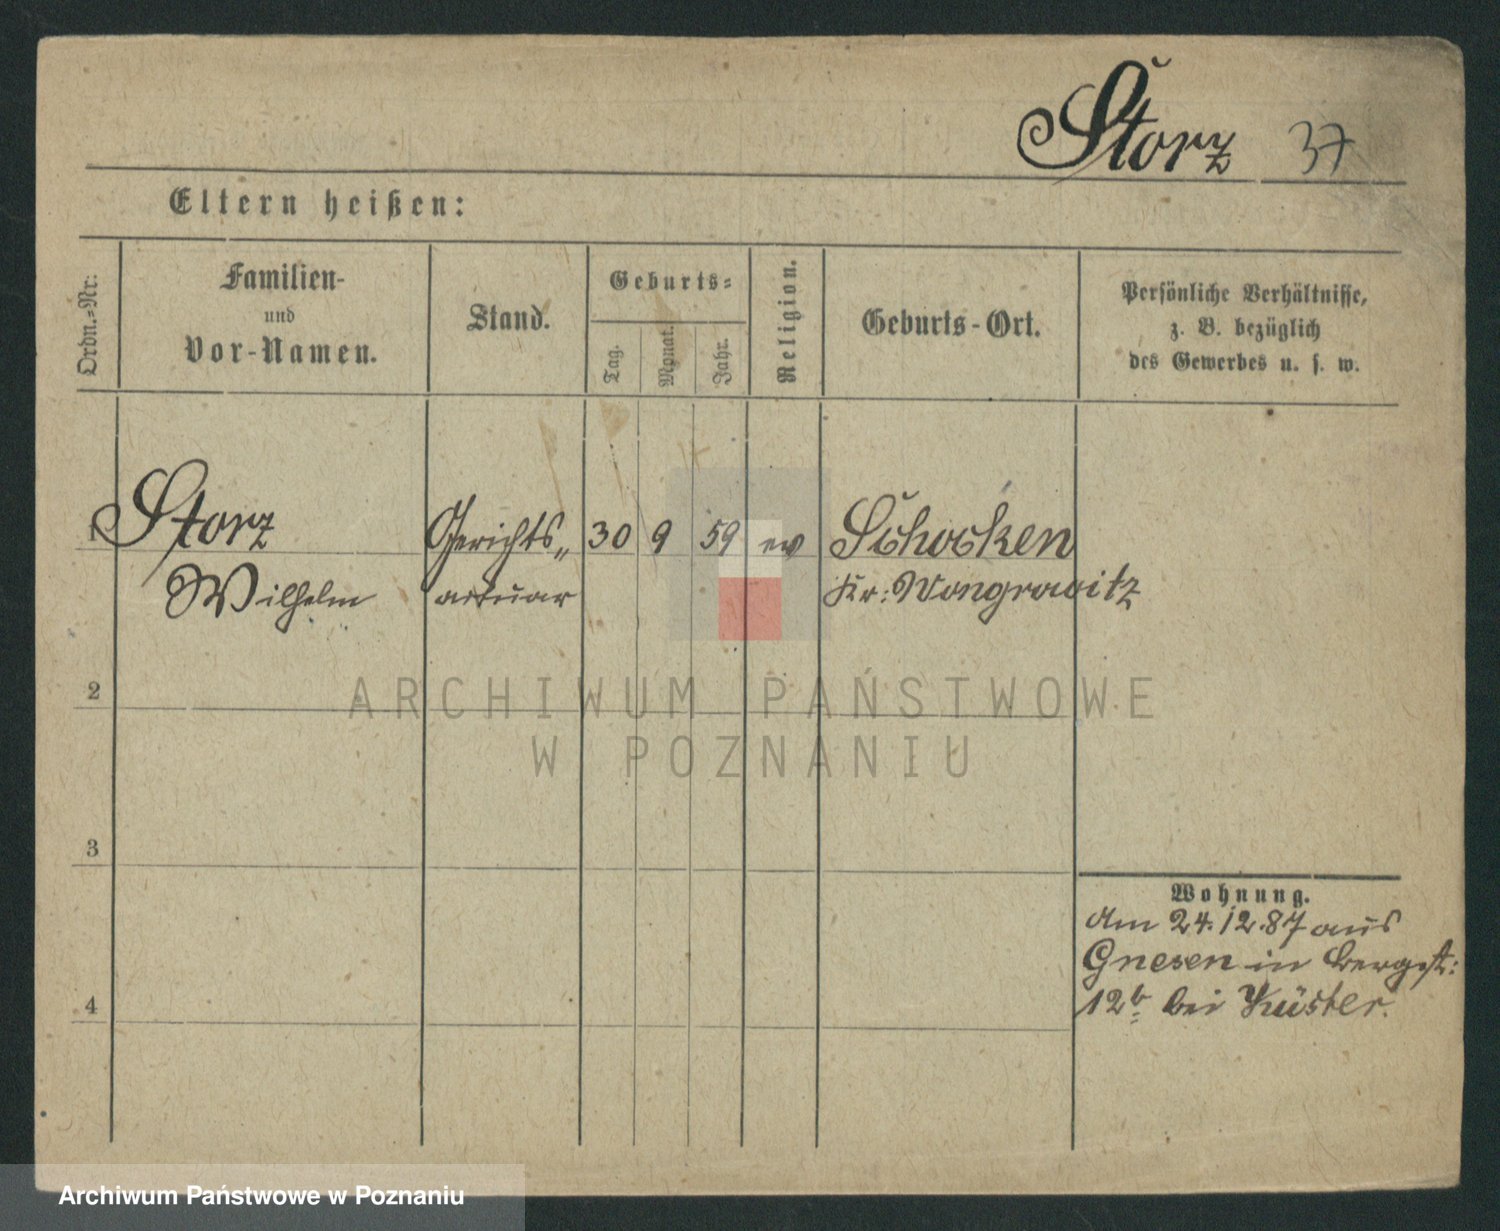 Storz 37
Eltern heißen:
Ordn.-Nr:
Familien-
und
Vor-Namen.
Stand.
Geburts-
Tag.
Monat.
Jahr.
Religion.
Geburts-Ort.
Persönliche Verhältnisse,
z. B. bezüglich
des Gewerbes u. s. w.
1 Storz Gerichts„ 30 9 59 ev Schocken
Wilhelm actuar Kr: Wongrowitz
2
ARCHIWUM PAŃSTWOWE
W POZNANIU
3
Wohnung.
Am 24.12.87 aus
Gnesen in Bergst:
4
12b bei Küster.
Archiwum Państwowe w Poznaniu